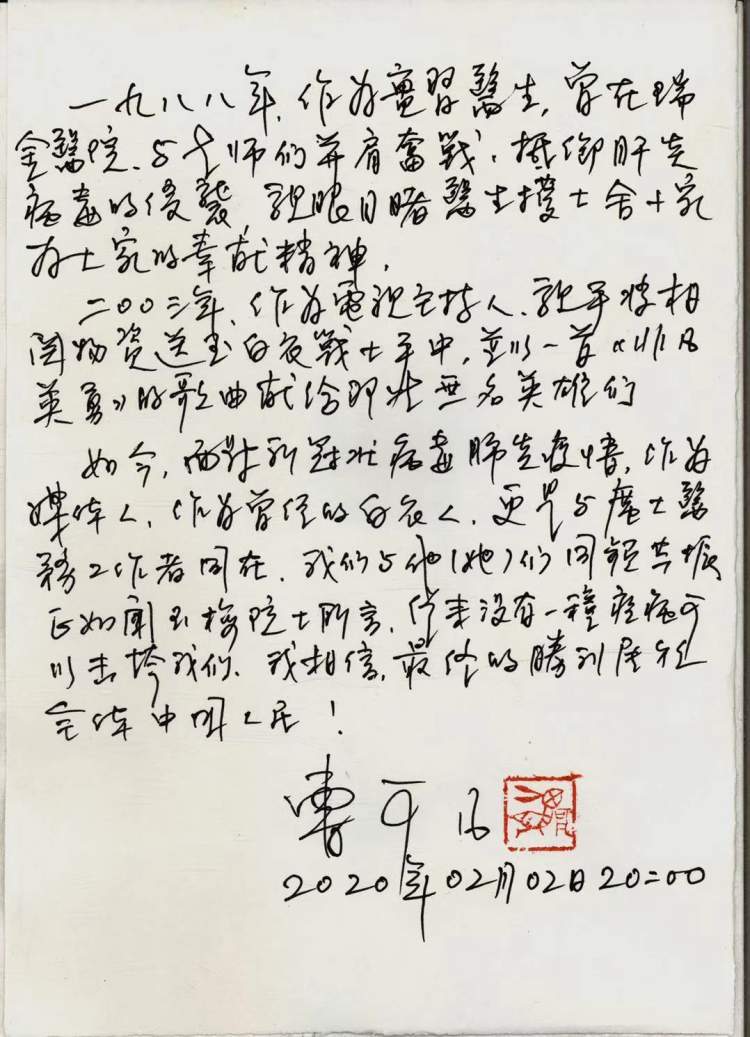 一九八八年，作为實習醫生，曾在瑞
金醫院，与老师们并肩奮戰，抵御肝炎
病毒的侵襲，親眼目睹醫生護士舍小家
为大家的奉献精神。
二〇〇三年，作为電視主持人，親手將相
関物資送至白衣戰士手中，並以一首《非凡
英勇》的歌曲献给那些無名英雄们
如今，面對新冠狀病毒肺炎疫情，作为
媒体人，作为曾经的白衣人，更是与廣大醫
務工作者同在，我们与他（她）们同频共振
正如闻玉梅院士所言，從来没有一種疫病可
以击垮我们，我相信，最终的勝利属於
全体中国人民！
曹可凡
2020年02月02日20:00